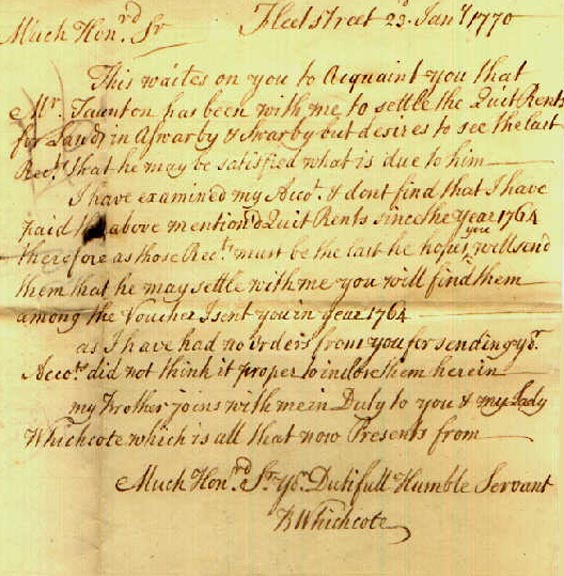 Fleetstreet 23d. Jany 1770
Much Hon.rd Sr
This waites on you to Acquaint you that
Mr. Taunton has been with me to settle the Quit Rents
for Land in Aswarby & Swarby but desires to see the last
Rect. that he may be satisfied what is due to him
I have examined my Acco.t & dont find that I have
paid the above mention'd Quit Rents since the year 1764
therefore as those Rec.ts must be the last he hopes you will send
them that he may settle with me you will find them
among the Voucher I sent you in year 1764
as I have had no orders from you for sending yr.
Acco.ts did not think it proper to inclose them herein
my Brother joins with me in Duty to you & my Lady
Whichcote which is all that now Presents from
Much Hon.rd Sr. yr. Dutifull Humble Servant
B Whichcote